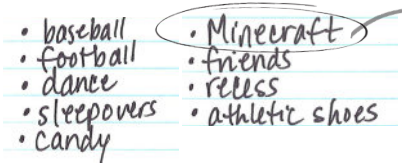 • baseball
• football
• dance
• sleepovers
• candy
• Minecraft
• friends
• recess
• athletic shoes